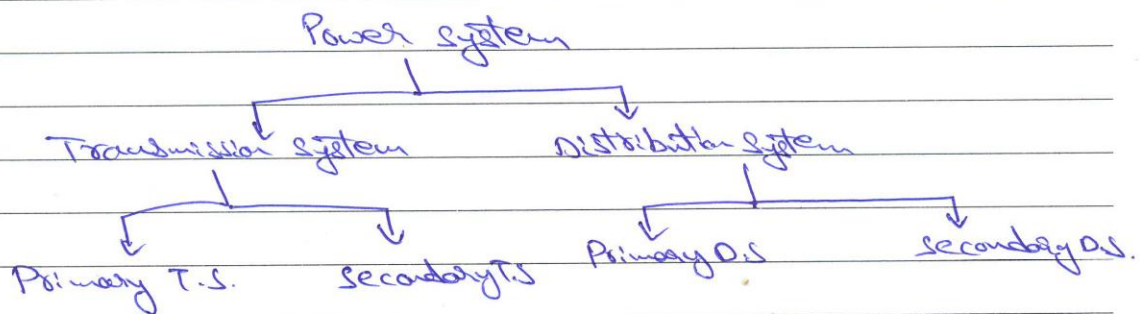 Power system
Transmission system Distribution system
Primary T.S. secondary T.S Primary D.S secondary D.S.